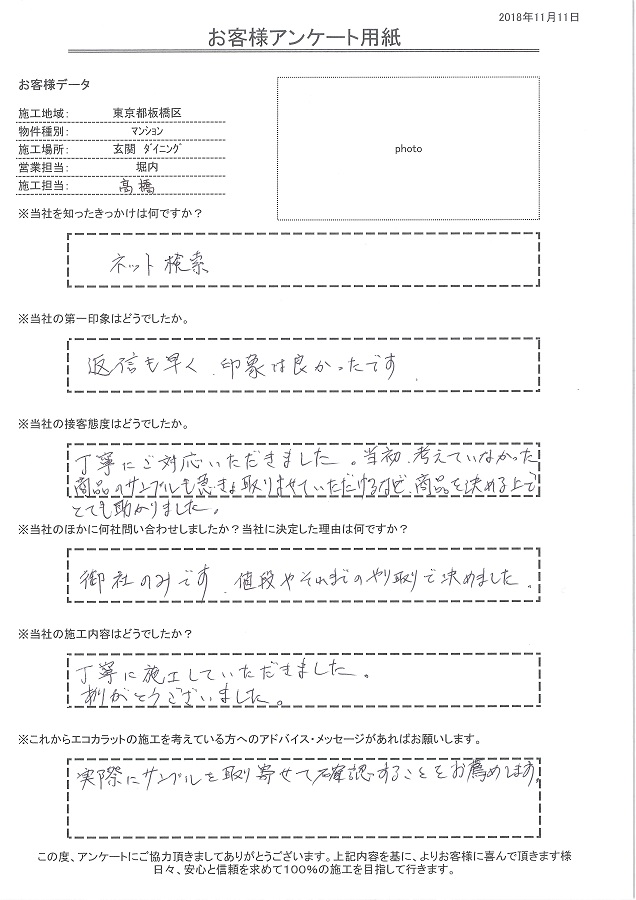 2018年11月11日
お客様アンケート用紙
お客様データ
施工地域: 東京都板橋区
物件種別: マンション
施工場所: 玄関 ダイニング
営業担当: 堀内
施工担当: 高橋
photo
※当社を知ったきっかけは何ですか?
ネット検索
※当社の第一印象はどうでしたか。
返信も早く、印象は良かったです
※当社の接客態度はどうでしたか。
丁寧にご対応いただきました。当初、考えていなかった
商品のサンプルも急きょ取りよせていただけるなど、商品を決める上で
とても助かりました。
※当社のほかに何社問い合わせしましたか?当社に決定した理由は何ですか?
御社のみです、値段やそれまでのやり取りで決めました。
※当社の施工内容はどうでしたか?
丁寧に施工していただきました。
ありがとうございました。
※これからエコカラットの施工を考えている方へのアドバイス・メッセージがあればお願いします。
実際にサンプルを取り寄せて確認することをお薦めします。
この度、アンケートにご協力頂きましてありがとうございます。上記内容を基に、よりお客様に喜んで頂きます様
日々、安心と信頼を求めて100%の施工を目指して行きます。